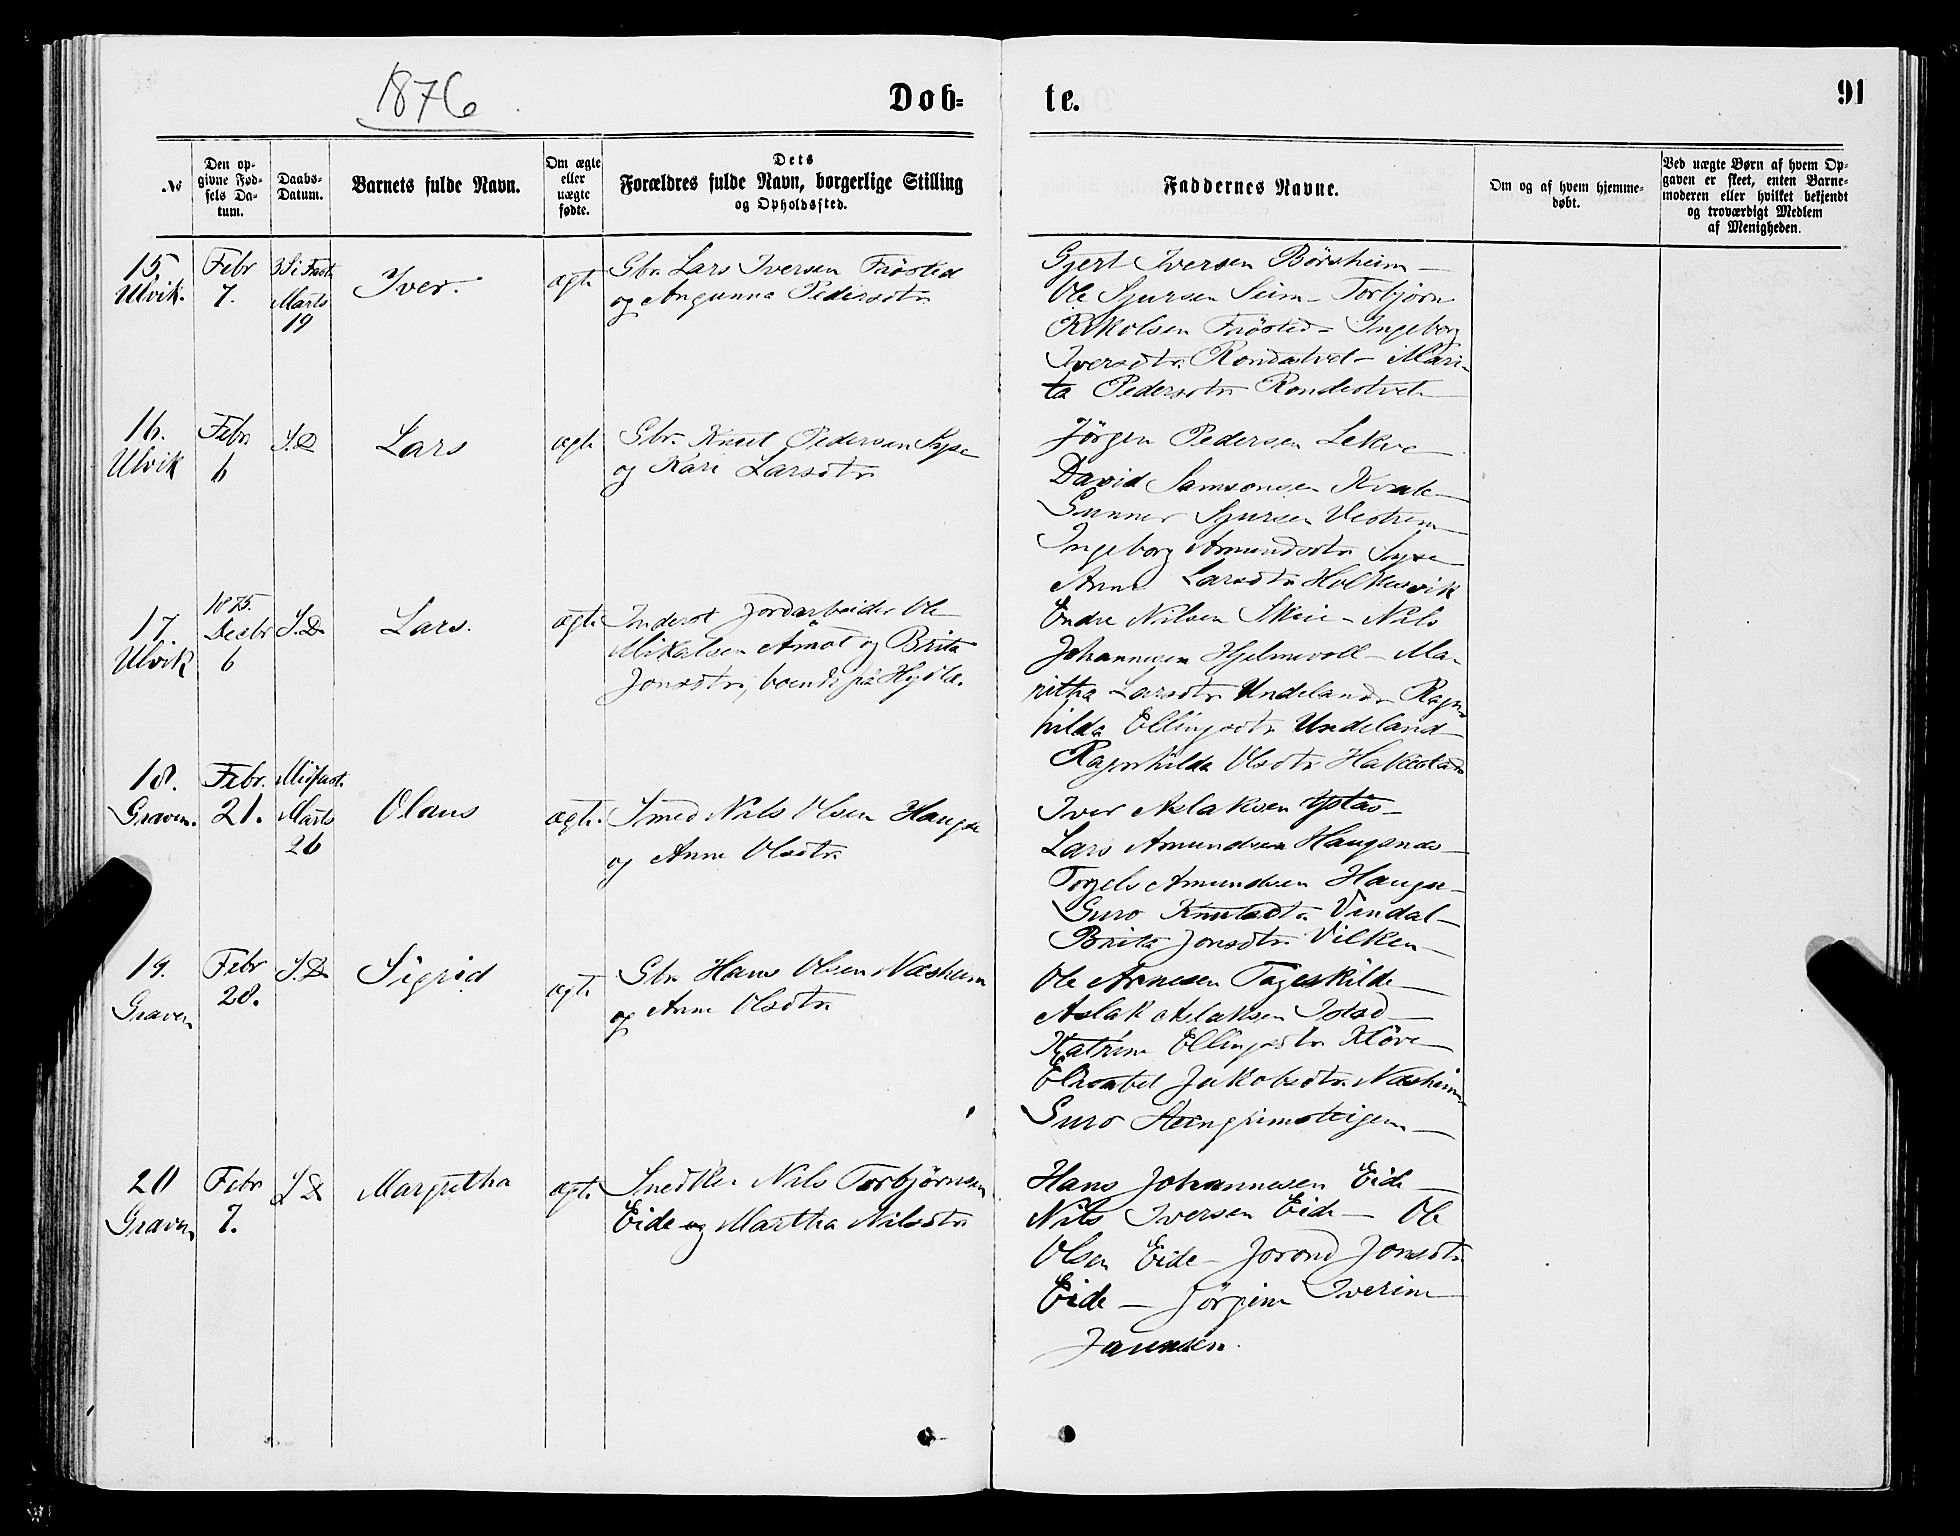 1876
Dob-
te.
91
No
Den op-
givne Fød-
sels Da-
tum.
Daabs-
Datum.
Barnets fulde Navn.
Om ægte
eller
uægte
fødte.
Dets
Forældres fulde Navn, borgerlige Stilling
og Opholdssted.
Faddernes Navne.
Om og af hvem hjemme-
døbt.
Ved uægte Børn af hvem Op-
gaven er skeet, enten Barne-
moderen eller hvilket bekjendt
og troværdigt Medlem
af Menigheden.
15.
Ulvik.
Febr
7.
3 Si Fast.
Marts
19
Iver.
ægt.
Gbr. Lars Iversen
og Angunna Pedersdtr.
Gjert Iversen Börsheim —
Ole Sjursen Seim - Torbjörn
Ingeborg
Iversdtr. Rondestvet - Mari-
ta Pedersdtr Rondestvet
16.
Ulvik
Febr
6
S.D
Lars
ægt.
Gbr. Knut Pedersen Syse
og Kari Larsdtr.
Jörgen Pedersen Lekve
David Samsonsen Kvale —
Gunner Sjursen Vestrem
Ingeborg Amundsdtr Syse
Anna Larsdtr Holkesvik
17.
Ulvik
1875.
Decbr
6
S.D.
Lars.
ægt.
Inderst Jordarbeider Ole
Mikalsen Åmot og Brita
Jonsdtr, boende på Hydle.
Endre Nilsen Skeie - Nils
Johannesen Hjelmevoll - Ma-
ritha Larsdtr Undeland. Ragn-
hilda Ellingsdtr Undeland —
Ragnhilda Olsdtr Hakestad
18.
Graven.
Febr.
21.
Midfast.
Marts
26
Olaus
ægt.
Smed Nils Olsen Haugse
og Anne Olsdtr.
Iver Aslaksen Ystås —
Lars Amundsen Hauganes —
Torgels Amundsen Haugse —
Guro Knutsdtr. Vindal —
Brita Jonsdtr. Vilken —
19.
Graven
Febr
28.
S.D
Sigrid
ægt.
Gbr. Hans Olsen Næsheim
og Anne Olsdtr.
Ole Arnesen Tageskilde —
Aslak Aslaksen
Katrine Ellingsdtr Klöve —
Elisabet Jakobsdtr. Næsheim
Guro —
20
Graven
Febr
7.
S D
Margretha
ægt.
Snedker Nils Torbjörnsen
Eide og Martha Nilsdtr
Hans Johannesen Eide —
Nils Iversen Eide — Ole
Olsen Eide - Jorond Jonsdtr.
Eide — Jörgine Iverine